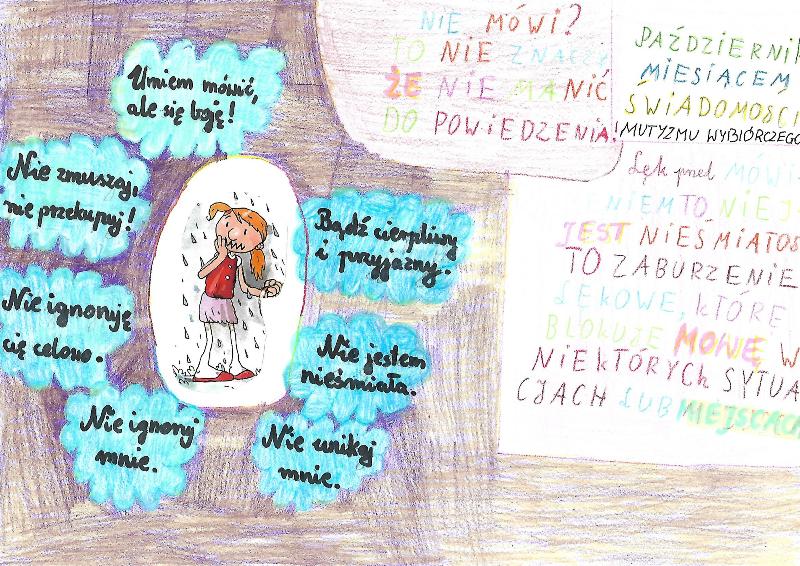 NIE MÓWI?
TO NIE ZNACZY
ŻE NIE MA NIĆ
DO POWIEDZENIA.
PAŹDZIERNIK
MIESIĄCEM
ŚWIADOMOŚCI
MUTYZMU WYBIÓRCZEGO
Umiem mówić,
ale się boję!
Nie zmuszaj,
nie przekupuj!
Nie ignoruję
cię celowo.
Nie ignoruj
mnie.
Bądź cierpliwy
i przyjazny.
Nie jestem
nieśmiała.
Nie unikaj
mnie.
Lęk przed MÓWI
ENIEM TO NIE J
JEST NIEŚMIAŁOŚ
TO ZABURZENIE
LĘKOWE, KTÓRE
BLOKUJE MOWĘ W
NIEKTÓRYCH SYTUA
CJACH LUB MIEJSCACH